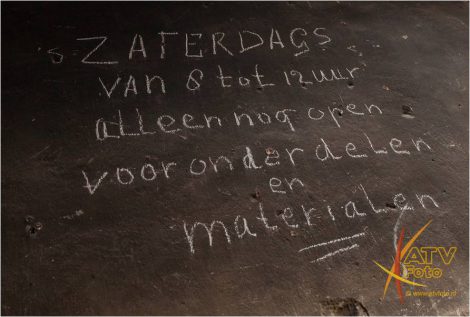 'S ZATERDAGS
VAN 8 tot 12 uur
alleen nog open
voor onderdelen
en
materialen
ATV
Foto
© www.atvfoto.nl